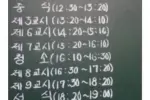 중 식 (12:30~13:20)
제 5 교시 (13:20~14:10)
제 6 교시 (14:20~15:10)
제 7 교시 (15:20~16:10)
청 소 (16:10~16:30)
제 8 교시 (16:30~17:20)
제 9 교시 (17:30~18:20)
석 식 (18:20~19:00)